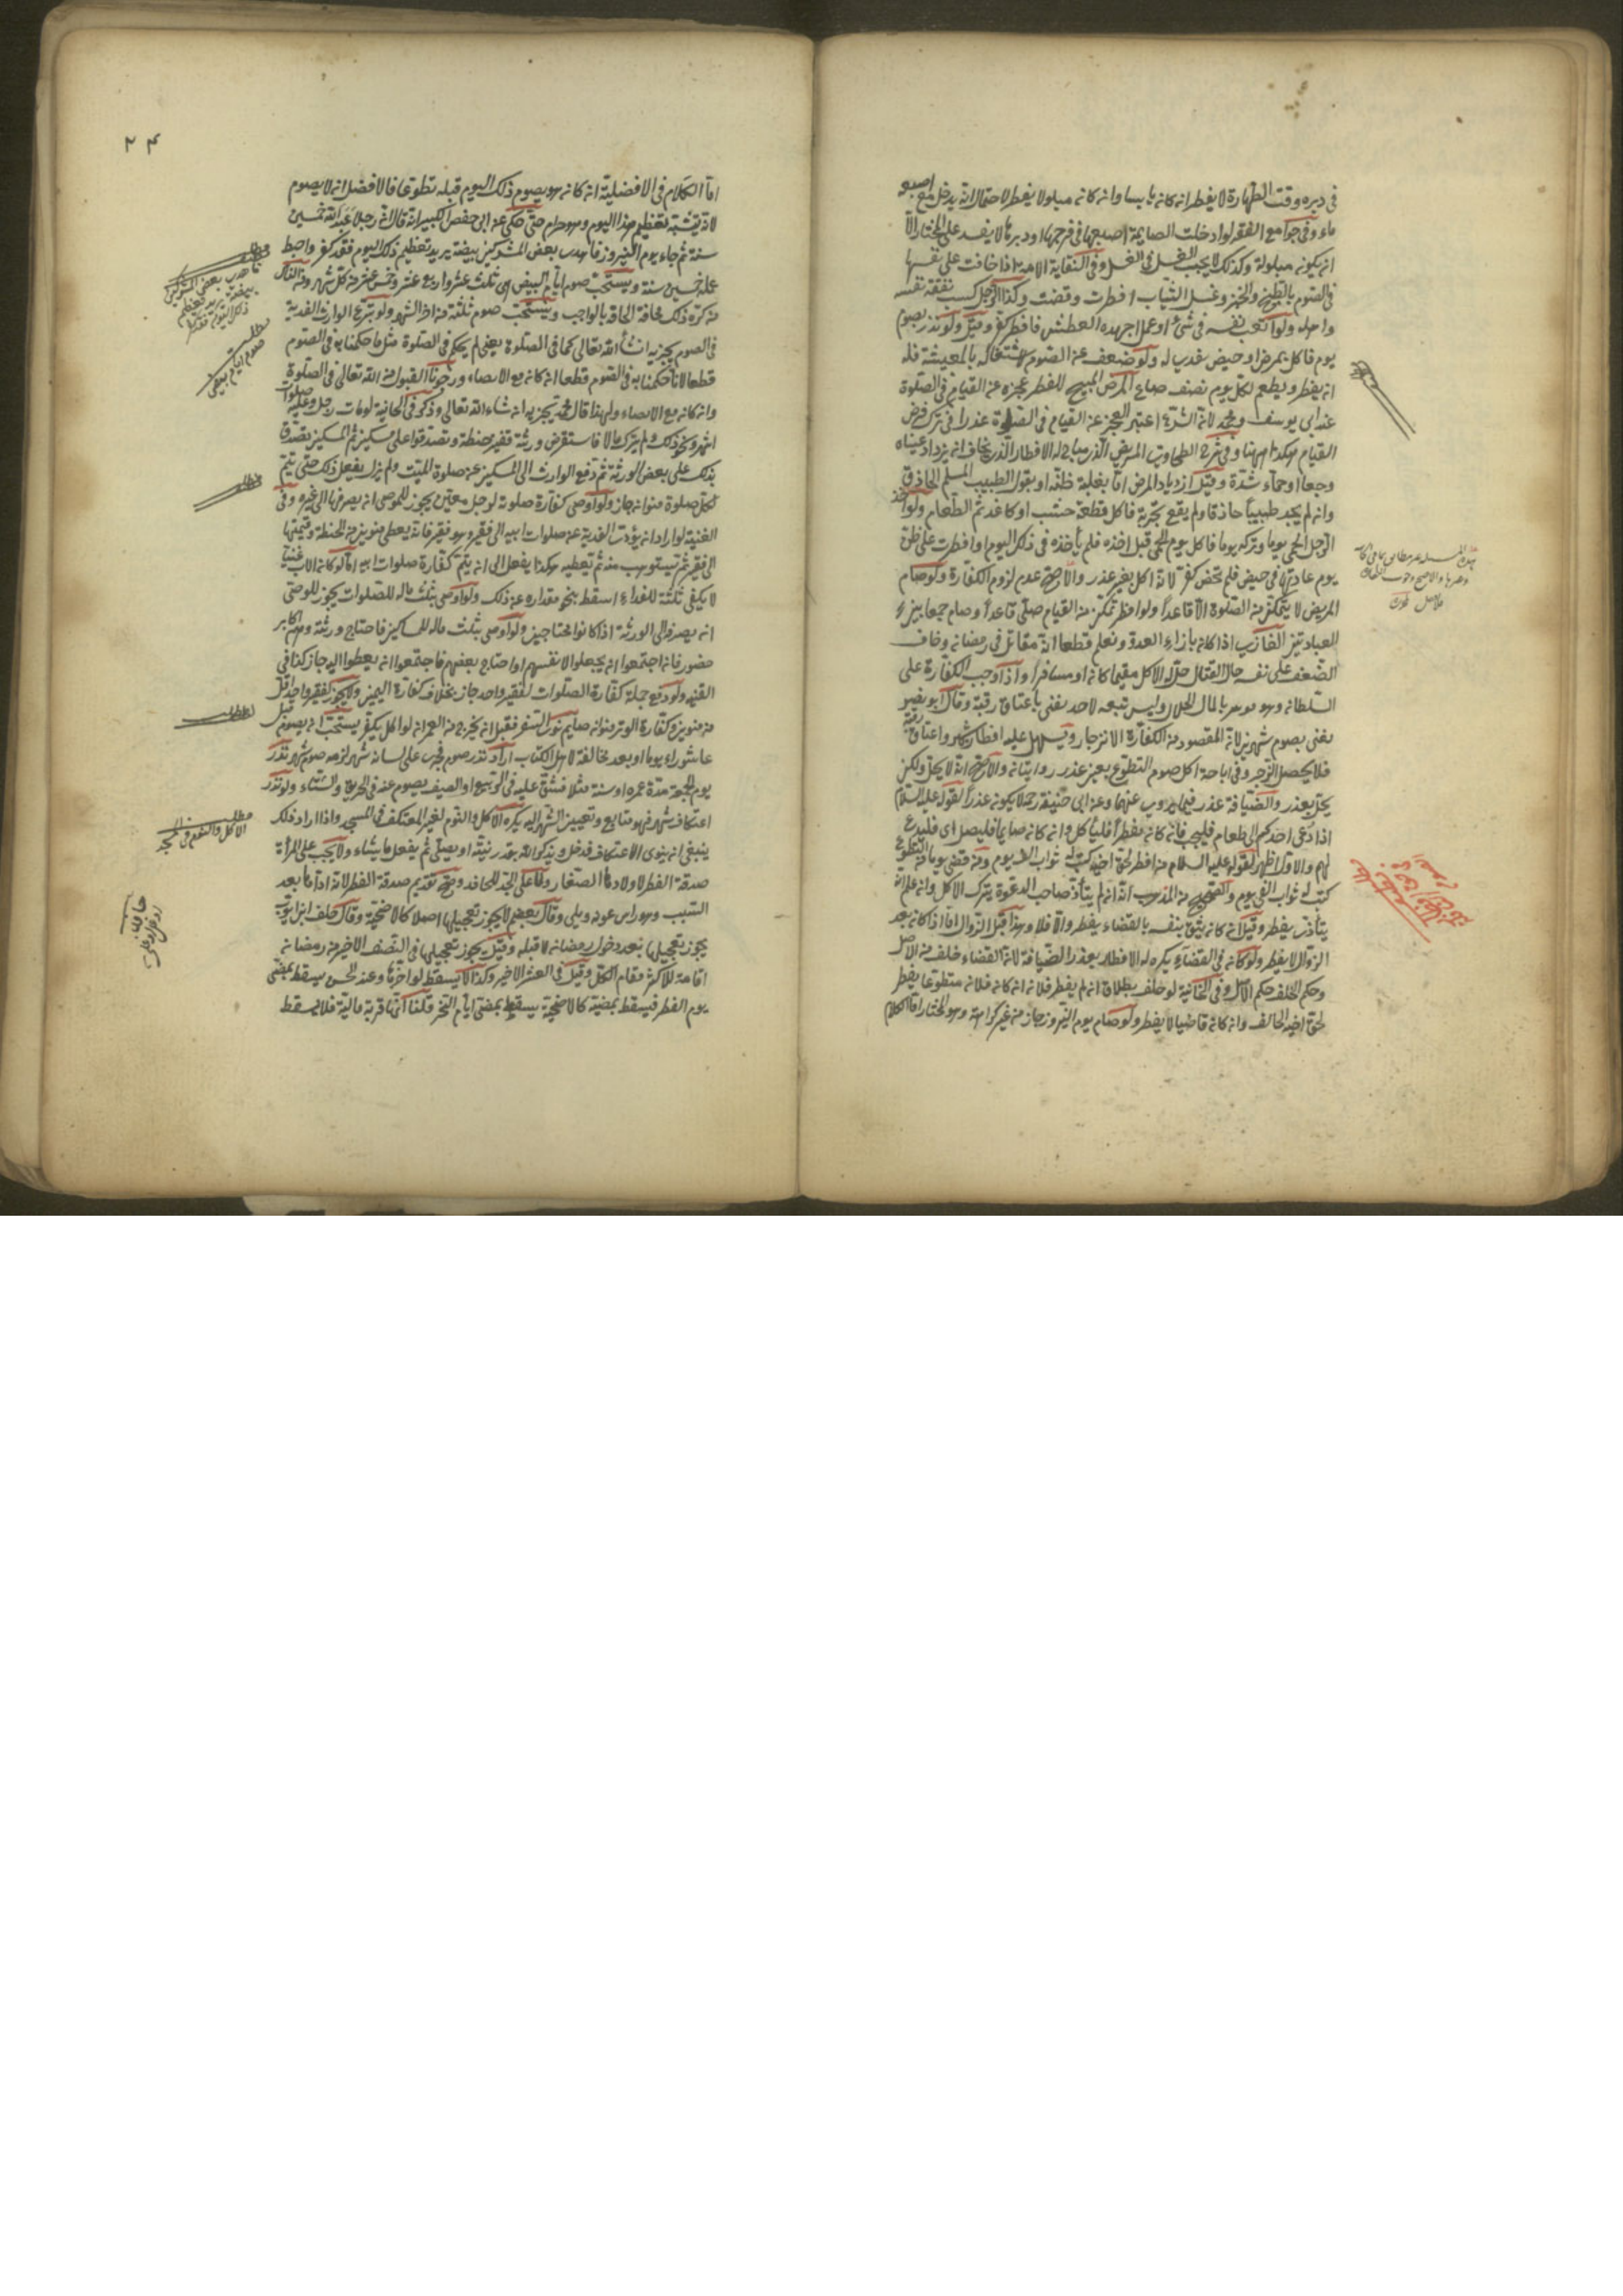 في دبره وقت الطهارة لا يفطر انه كانه يابسا وانه كانه مبلولا يفطر لاحتمال انه يدخل مع اصبعه
ماء وفي جوامع الفقه لو ادخلت الصايمة اصبعها في فرجها او دبرها لا يفسد على المختار الا
انه يكونه مبلولة وكذلك لا يجب الغسل في الغسل وفي النقاية الامة اذا خافت على نفسها
في الصوم بالطبخ والخبز وغسل الثياب افطرت وقضت وكذا الرجل كسب نفقة نفسه
واهله ولو اتعب نفسه في شئ او عمل اجهده العطش فافطر كفر وقيل ولو نذر بصوم
يوم فاكل بمرض او حيض فدب له ولو ضعف عنه الصوم لاشتغاله بالمعيشة فله
انه يفطر ويطعم لكل يوم نصف صاع المرض المبيح للفطر عجزه عنه القيام في الصلوة
عند ابي يوسف ومحمد لانه الشرع اعتبر العجز عنه القيام في الصلوة عذرا في ترك فرض
القيام هكذا ههنا وفي شرح الطحاوي المريض الذي مباح له الافطار الذي يخاف انه يزداد عيناه
وجعا او حماه شدة وقيل ازدياد المرض اما بغلبة ظنه او بقول الطبيب المسلم الحاذق
وانه لم يجد طبيبا حاذقا ولم يقع بتجربة فاكل قطعة خشب او كاغد ثم الطعام ولو اخذ
الرجل الحمى يوما وتركه يوما فاكل يوم الحمى قبل اخذه فلم يأخذه في ذلك اليوم او افطرت على ظن
يوم عادتها في حيض فلم تحض كفر لانه اكل بغير عذر والاصح عدم لزوم الكفارة ولو صام
المريض لا يتمكن منه الصلوة الا قاعدا ولو افطر تمكن منه القيام صلى قاعدا وصام جمعا بين
العبادتين الغازي اذا كانه بازاء العدو ونعلم قطعا انه مقاتل في رمضانه وخاف
الضعف على نفسه حال القتال حل له الاكل مقيما كانه او مسافرا واذا وجب الكفارة على
السلطانه وهو موسر بالمال الحلال وليس تبعه لاحد يفتى باعتاق رقبة وقال ابو نصر
يفتى بصوم شهرين لانه المقصود منه الكفارة الانزجار ويسهل عليه افطار شهر واعتاق رقبة
فلا يحصل الزجر وفي اباحة اكل صوم التطوع بغير عذر روايتانه والاصح انه لا يحل ولكن
يحل بعذر والضيافة عذر فيما يروي عنهما وعنه ابي حنيفة رحمه لا يكونه عذرا لقوله عليه السلام
اذا دعي احدكم الى طعام فليجب فانه كانه مفطرا فليأكل وانه كانه صايما فليصل اي فليدع
لهم والاول اظهر لقوله عليه السلام منه افطر لحق اخيه كتب له ثواب الف يوم ومنه قضى يوما منه التطوع
كتب له ثواب الفي يوم والصحيح منه المذهب انه انه لم يتأذ صاحب الدعوة بترك الاكل وانه علم انه
يتأذى يفطر وقيل انه كانه يثق بنفسه بالقضاء يفطر والا فلا وهذا قبل الزوال اما اذا كانه بعد
الزوال لا يفطر ولو كانه في القضاء يكره له الافطار بعذر الضيافة لانه القضاء خلف منه الاصل
وحكم الخلف حكم الاصل وفي الخانية لو حلف بطلاق انه لم يفطر فلانه انه كانه فلانه متطوعا يفطر
لحق اخيه الحالف وانه كانه قاضيا لا يفطر ولو صام يوم النيروز جاز منه غير كراهة وهو المختار اما الكلام
۲۴
اما الكلام في الافضلية انه كانه هو يصوم ذلك اليوم قبله تطوعا فالافضل انه لا يصوم
لانه يتشبه تعظيم هذا اليوم وهو حرام حتى حكى عنه ابي حفص الكبير انه قال لانه رجلا عبد الله خمسين
سنة ثم جاء يوم النيروز فاهدى بعض المشركين بيضة يريد تعظيم ذلك اليوم فقد كفر واحبط
عمله خمسين سنة ويستحب صوم ايام البيض اي ثلث عشر واربع عشر وخمس عشر منه كل شهر ومنه الناس
منه كره ذلك مخافة الحاقه بالواجب ويستحب صوم ثلثة منه اخر الشهر ولو تبرع الوارث الفدية
في الصوم يجزيه انشأ الله تعالى كما في الصلوة يعني لم يحكم في الصلوة مثل ما حكمنا به في الصوم
قطعا لانا حكمنا به في الصوم قطعا انه كانه مع الايصاء ورجونا القبول منه الله تعالى في الصلوة
وانه كانه مع الايصاء ولهذا قال محمد يجزيه انه شاء الله تعالى وذكر في الخانية لو مات رجل وعليه صلوات
اشهر ونحو ذلك ولم يترك مالا فاستقرض ورثته قفيز حنطة وتصدقوا على مسكين ثم المسكين تصدق
بذلك على بعض الورثة ثم دفع الوارث الى المسكين عنه صلوة الميت ولم يزل يفعل ذلك حتى يتم
لكل صلوة منوانه جاز ولو اوصى كفارة صلوته لرجل معين يجوز للموصي انه يصرفها الى غيره وفي
القنية لو ارادانه يؤدي الفدية عنه صلوات ابيه الى فقير وهو فقير فانه يعطي منوين منه الحنطة وقيمتها
الى فقير ثم يستوهب منه ثم يعطيه هكذا يفعل الى انه يتم كفارة صلوات ابيه اما لو كانه الاب غنيا
لا يكفي ثلثة للفداء اسقط بنحو مقداره عنه ذلك ولو اوصى بثلث ماله للصلوات يجوز للوصي
انه يصرفه الى الورثة اذا كانوا محتاجين ولو اوصى بثلث ماله للمساكين فاحتاج ورثته وهم اكابر
حضور فانه اجتمعوا انه يجعلوا لانفسهم او احتاج بعضهم فاجتمعوا انه يعطوا اليه جاز كذا في
القنيه ولو دفع جملة كفارة الصلوات لفقير واحد جاز بخلاف كفارة اليمين ولا يجوز لفقير واحد اقل
منه منوين وكفارة الوتر منوانه صايم نوى السفر فقبل انه يخرج منه العمرانه لو اكل يكفر يستحب انه يصوم قبل
عاشوراء يوما او بعد مخالفة لاهل الكتاب اراد نذر صوم فجرى على لسانه شهر لزمه صوم شهر ونذر
يوم الجمعة مدة عمره او سنة مثلا فشق عليه في الربيع او الصيف يصوم عنه في الخريف والشتاء ولو نذر
اعتكاف شهر فهو متابع وتعيين الشهر اليه يكره الاكل والنوم لغير المعتكف في المسجد واذا اراد ذلك
ينبغي انه ينوي الاعتكاف فدخل ويذكر الله بقدر نيته او يصلي ثم يفعل ما يشاء ولا يجب على المرأة
صدقة الفطر لاولادها الصغار ولا على الجد للحافد وصح تقديم صدقة الفطر لانه اداها بعد
السبب وهو راس عونه ويلي وقال بعضهم لا يجوز تعجيلها اصلا كالاضحية وقال خلف ابن ايوب
يجوز تعجيلها بعد دخول رمضانه لا قبله وقيل يجوز تعجيلها في النصف الاخير منه رمضانه
اقامة للاكثر مقام الكل وقيل في العشر الاخير وكذا لا يسقط لو اخرها وعند الحسن يسقط بمضي
يوم الفطر فيسقط بمضيه كالاضحية يسقط بمضي ايام النحر قلنا انها قربة مالية فلا يسقط
مطلب
اهدى بعض المشركين
بيضة يريد تعظيم
ذلك اليوم فقد كفر
مطلب
صوم ايام بيض
مطلب
مطلب
مطلب
الاكل والنوم في المسجد